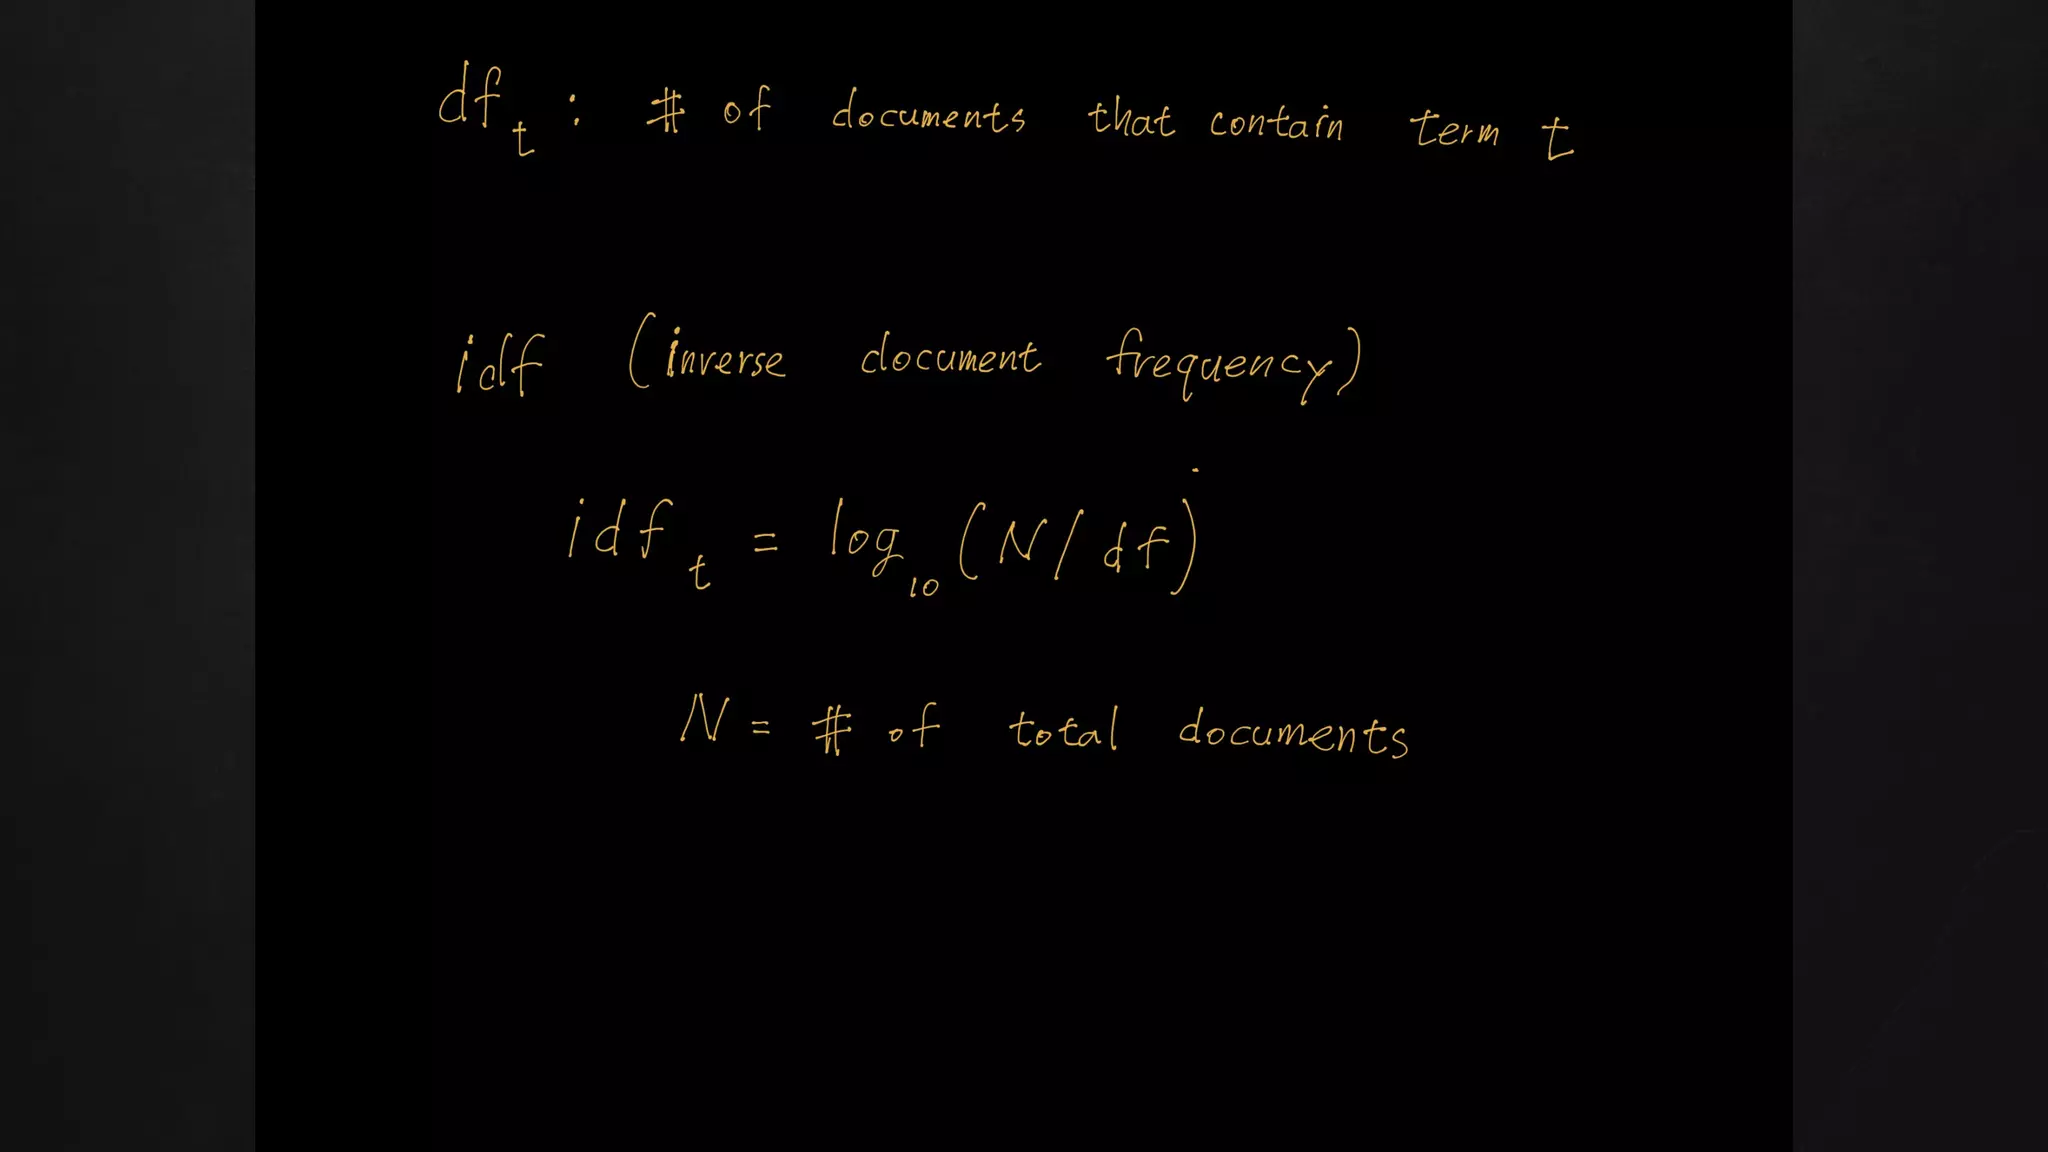 df_t : # of documents that contain term t
idf (inverse document frequency)
idf_t = log_10 (N/df)
N = # of total documents